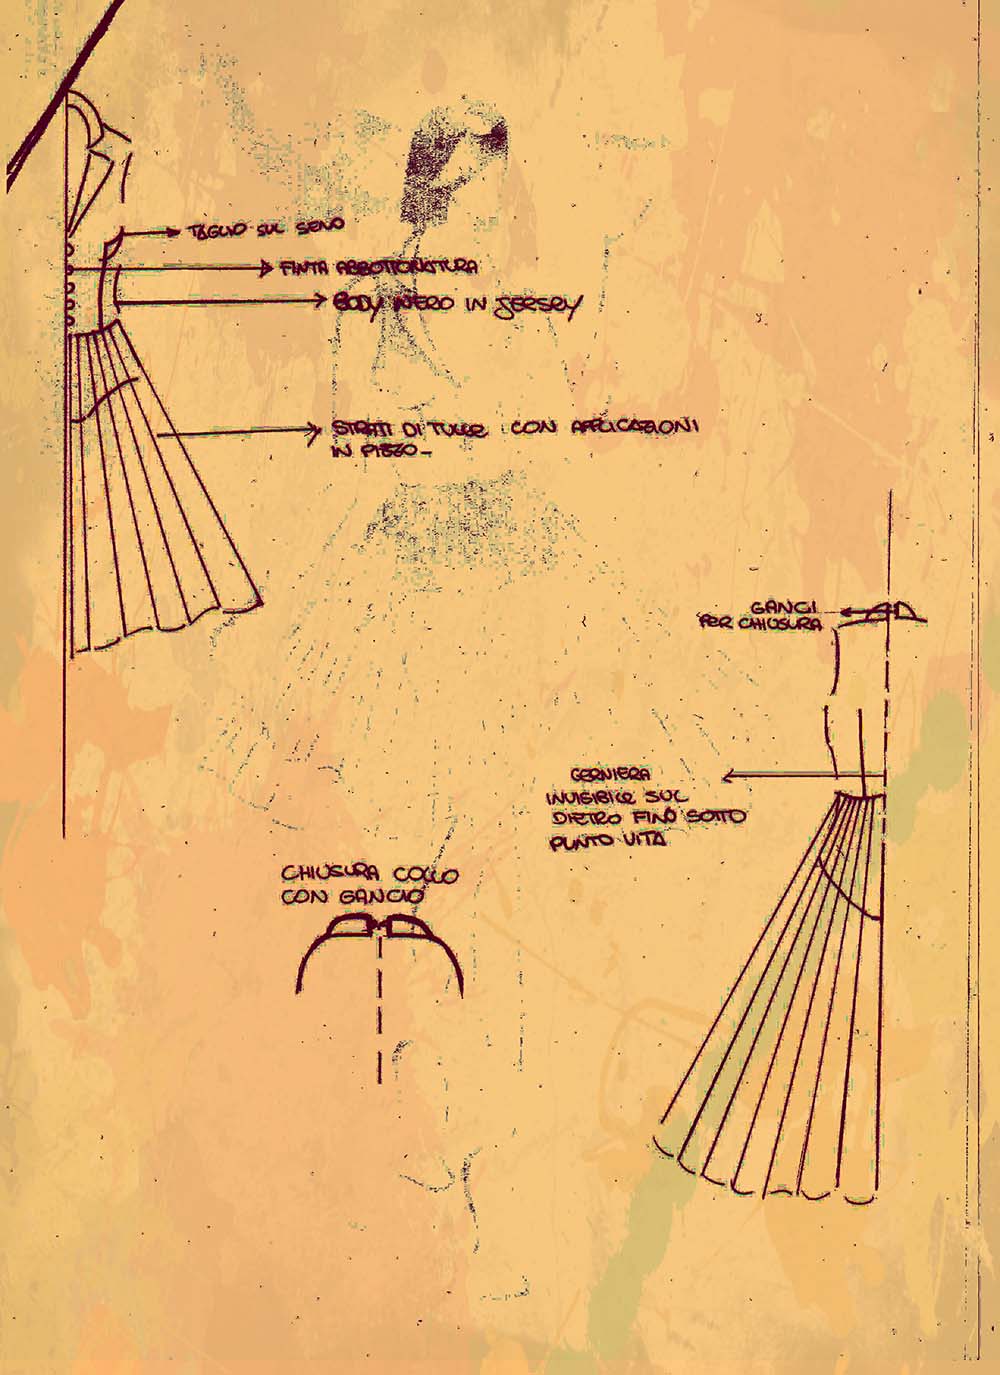 TAGLIO SUL SENO
FINTA ABBOTTONATURA
BODY NERO IN JERSEY
STRATI DI TULLE CON APPLICAZIONI
IN PIZZO-
GANCI
PER CHIUSURA
CERNIERA
INVISIBILE SUL
DIETRO FINO SOTTO
PUNTO VITA
CHIUSURA COLLO
CON GANCIO